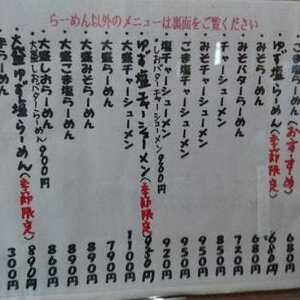 らーめん以外のメニューは裏面をご覧ください
みそらーめん 680円
ゆず塩らーめん(季節限定) 680円
みそバターらーめん 730円
チャーシューメン 850円
みそチャーシューメン 950円
ごま塩チャーシューメン 950円
塩チャーシューメン 920円
しおバターチャーシューメン 900円
ゆず塩チャーシューメン(季節限定) 950円
大盛チャーシューメン 1100円
大盛らーめん 790円
大盛みそらーめん 890円
大盛ごま塩らーめん 890円
大盛しおらーめん 860円
大盛しおバターらーめん 900円
大盛ゆず塩らーめん(季節限定) 890円
300円